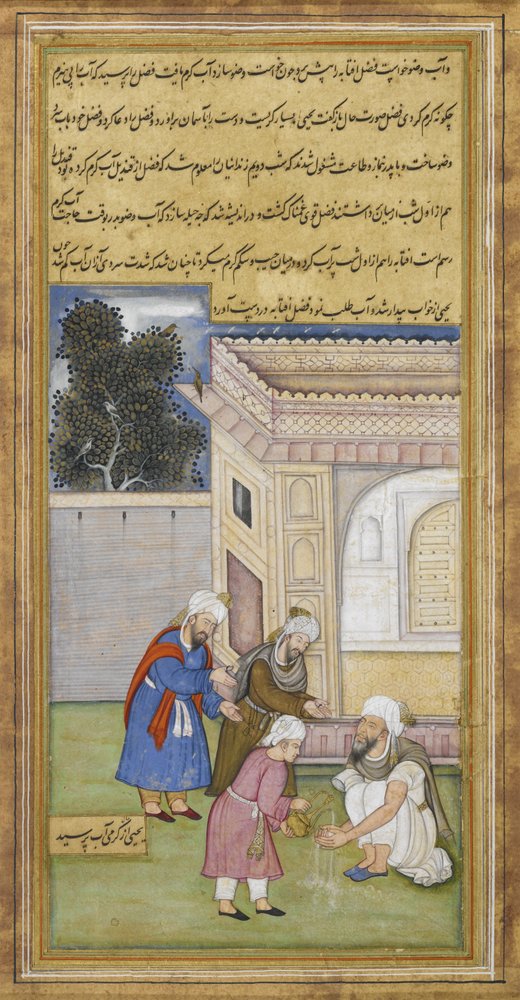 و آب وضو خواست فضل افتابه را پیش برد چون خواست وضو سازد آب گرم یافت فضل را پرسید که آب را بی هیزم
چگونه گرم کردی فضل صورت حال باز گفت یحیی بسیار گریست و دست را بآسمان براورد و فضل را دعا کرد و فضل خود با پدر
وضو ساخت و با پدر بنماز و طاعت مشغول شدند که شب دویم زندانیان را معلوم شد که فضل از قندیل آب گرم کرده بود قندیل را
هم از اول شب از میان داشتند فضل قوی غمناک گشت و در اندیشه شد که چه حیله سازد که آب وضو بدر بوقت حاجت آب گرم
رسم ست افتابه را هم از اول شب پر آب کرد و در میان جیب و شکم گرم میکرد تا چنان شد که شدت سردی آن آب کم شد چون
یحیی از خواب بیدار شد و آب طلب نمود فضل افتابه در دست آورد
یحیی از گرمی آب پرسید